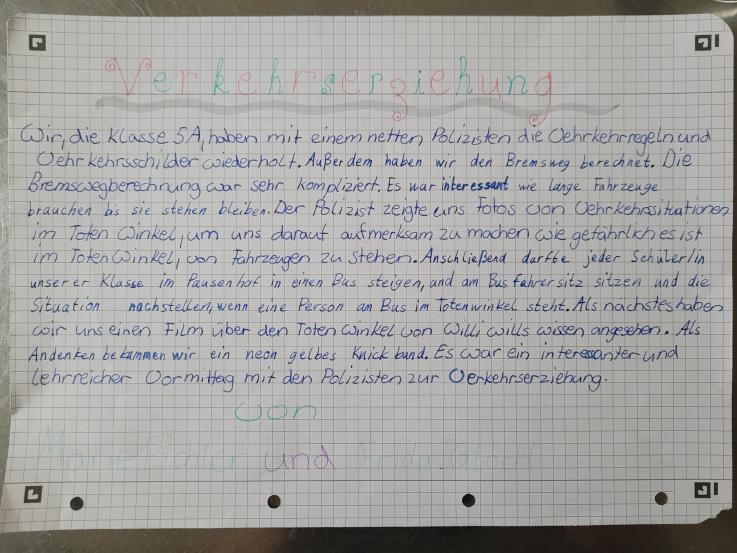 Verkehrserziehung
Wir, die Klasse 5A, haben mit einem netten Polizisten die Vehrkehrregeln und
Vehrkehrsschilder wiederholt. Außerdem haben wir den Bremsweg berechnet. Die
Bremswegberechnung war sehr kompliziert. Es war interessant wie lange Fahrzeuge
brauchen bis sie stehen bleiben. Der Polizist zeigte uns Fotos von Vehrkehrssituationen
im Toten Winkel, um uns darauf aufmerksam zu machen wie gefährlich es ist
im Toten Winkel, von Fahrzeugen zu stehen. Anschließend durfte jeder Schüler/in
unserer Klasse im Pausenhof in einen Bus steigen, und am Busfahrersitz sitzen und die
Situation nachstellen, wenn eine Person am Bus im Totenwinkel steht. Als nächstes haben
wir uns einen Film über den Toten Winkel von Willi wills wissen angesehen. Als
Andenken bekammen wir ein neon gelbes Knickband. Es war ein interessanter und
lehrreicher Vormittag mit den Polizisten zur Verkehrserziehung.
von
Marie Pichler und Frida